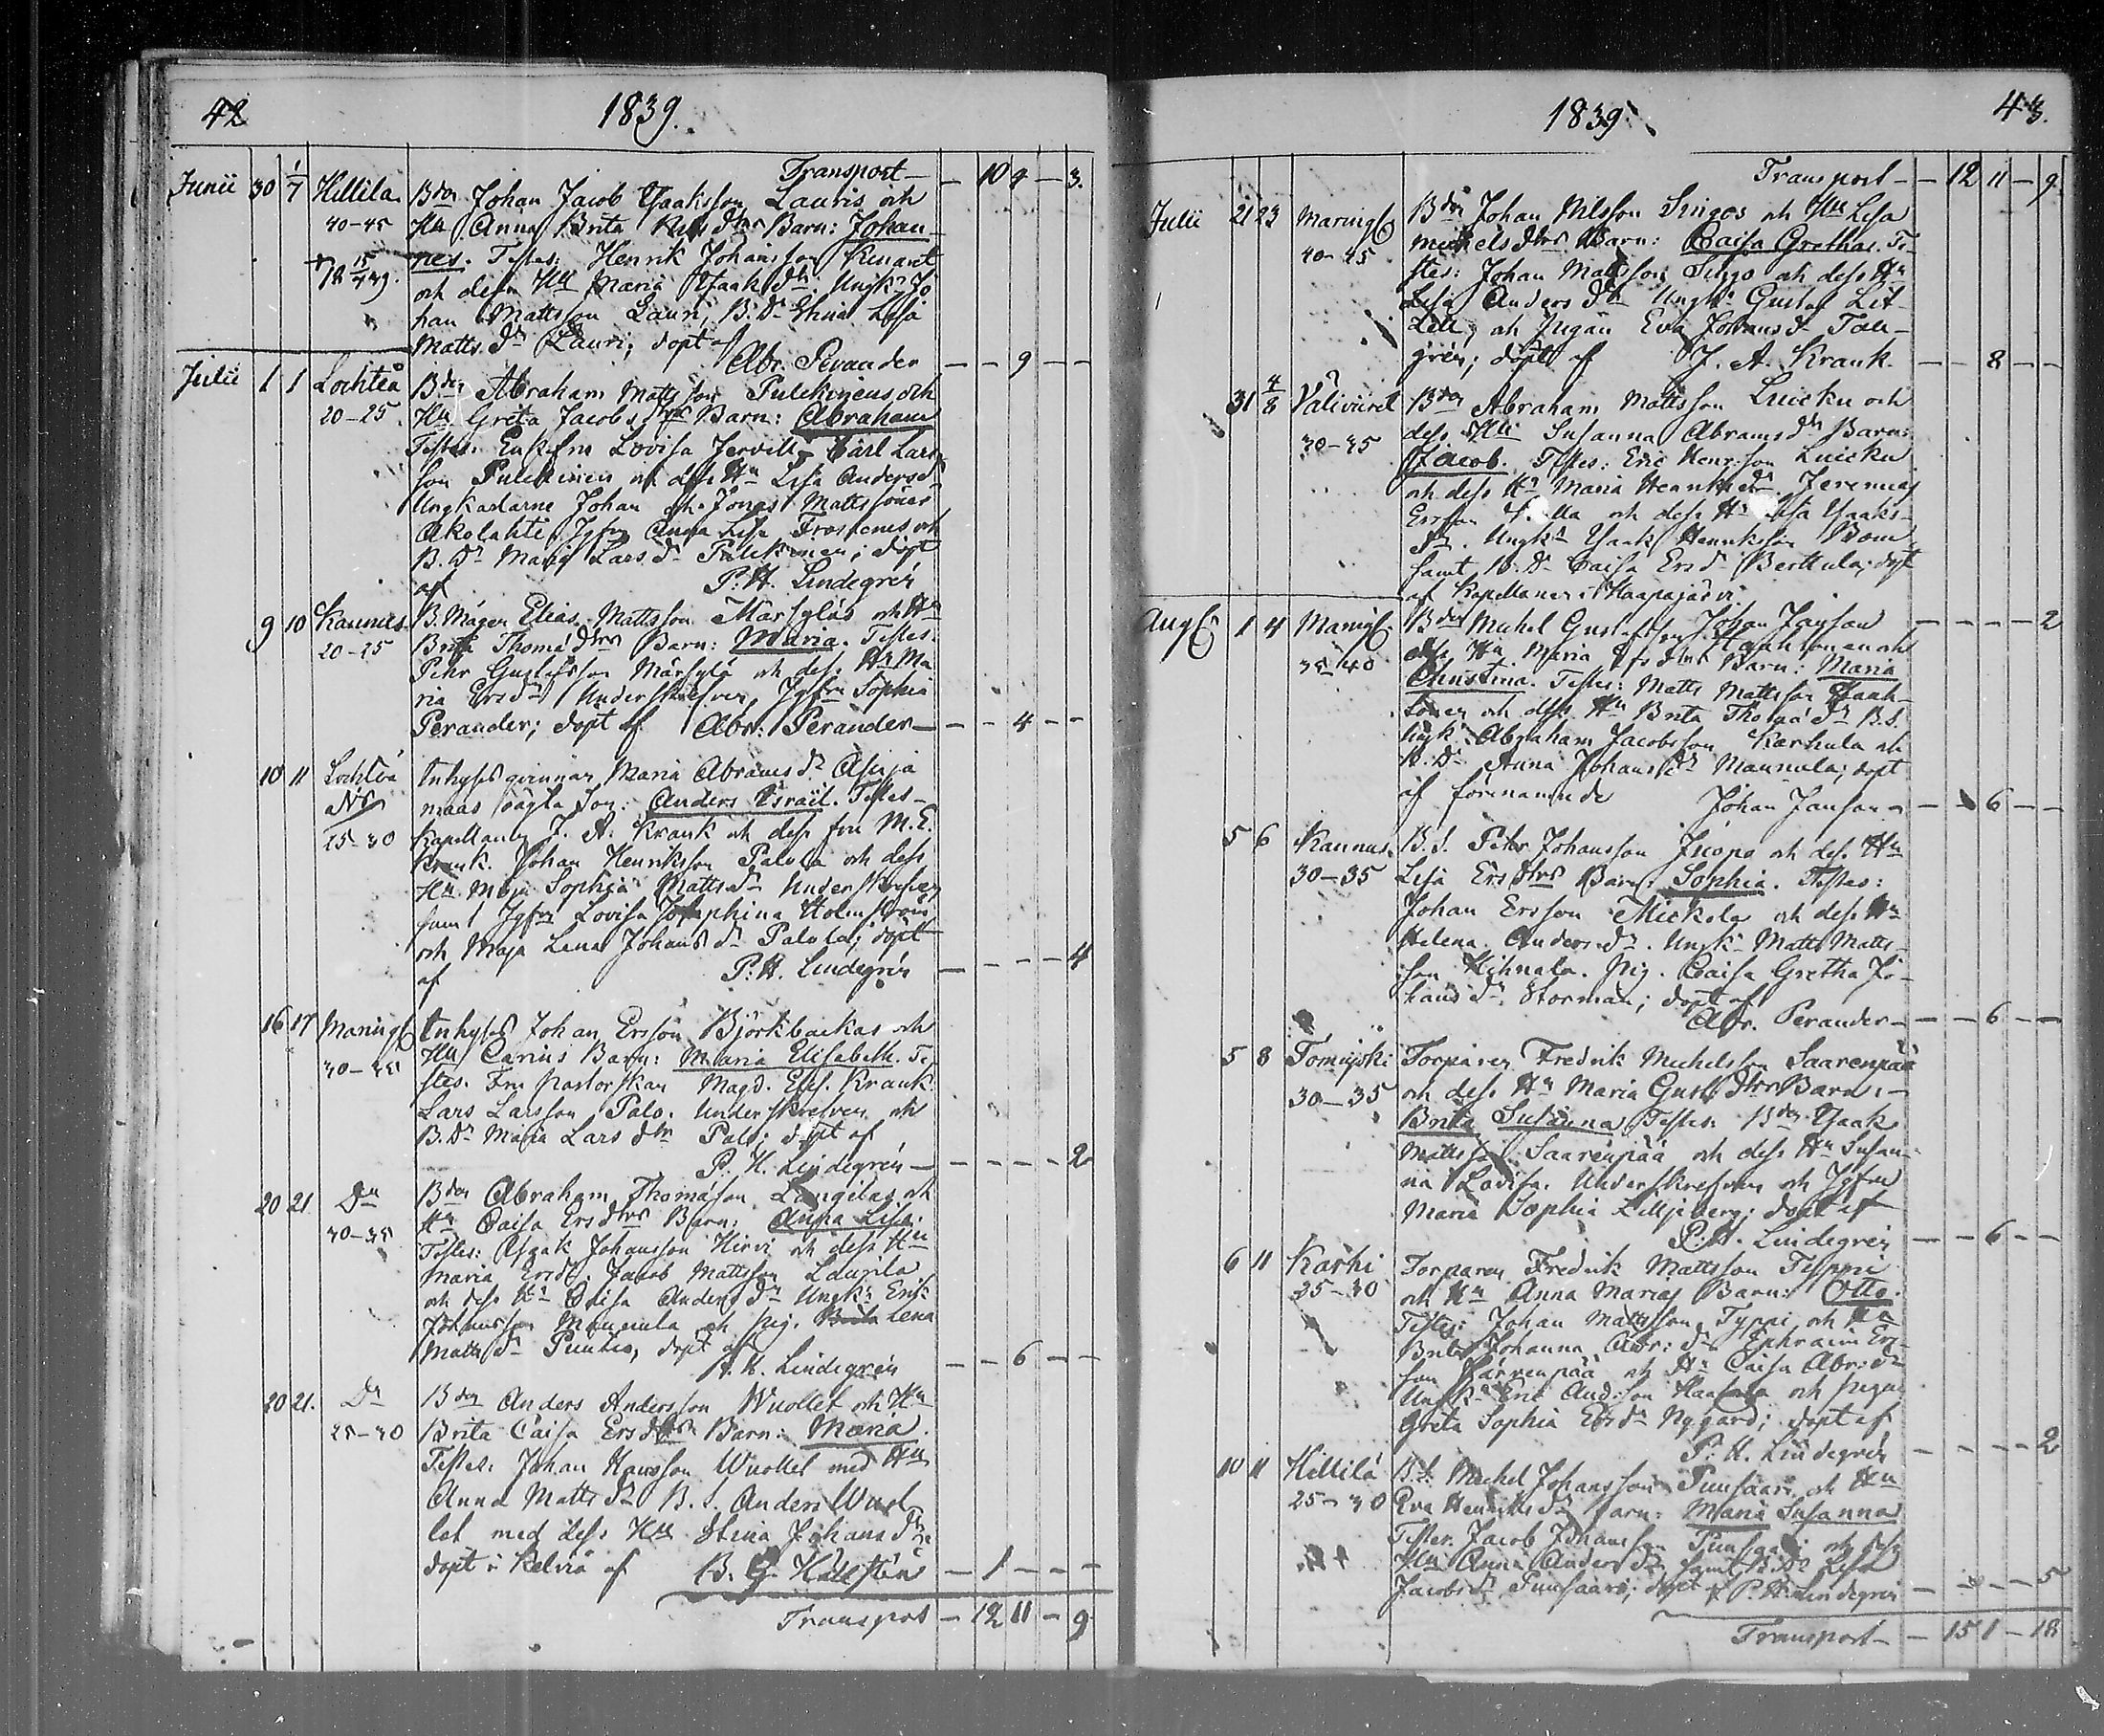 42 1839.
Transport — — 10 9 — 3.
Junii 30 1/7 Hillilä Bdn Johan Jacob Isaaksson Lauris och
40-45 Hu Anna Brita Nils dtrs Barn: Johan-
nes. Testes: Henrik Johansson
† 15/7 39. och dess Hu Maria Isaak dr. Ungk: Jo
han Mattsson Lauri, B. Dr Stina Lisa
Matts dr Lauri; döpt af
Abr. Perander — — 9 — —
Julii 1 1 Lochteå Bdn Abraham Mattsson Pulckinens och
20-25. Hu Greta Jacobs dtrs Barn: Abraham
Testes: Enkefru Lovisa Carl Lars
son Pulckinen och dess Hu Lisa Andersd
Ungkarlarne Johan och Jonas Mattssöner
Akolahti, Jgfru Anna Lisa och
B. Dr Maria Lars dr Pulckinen; döpt
af P. H. Lindegrén
9 10 Kannus B. Mågen Elias Mattsson Märsyläs och Hu
20-25 Brita Thomæ dtrs Barn: Maria. Testes:
Pehr Gustafsson Märsylä och dess Hu Ma
ria Ersdr Underskrefven, Jgfru Sophia
Perander; döpt af Abr: Perander — — — 4 — —
10 11 Lochteå Inhyses qvinnan Maria Abrams dr
maas oägta son: Anders Israël. Testes —
25-30 Kapellanen J. A. Krank och dess fru M. E.
Krank. Johan Henriksson Palola och dess
Hu Maja Sophia Matts dr Underskrefven
samt Jgfru Lovisa Josephina Holmström
och Maja Lena Johans dr Palola; döpt
af P. H. Lindegrén — — — — 4
16 17 Maringb Inhyses Johan Ersson Björkbackas och
30-35 Hu Carins Barn: Maria Elisabeth. Te-
stes. Fru Pastorskan Magd. Elis. Krank
Lars Larsson Palo. Underskrefven och
B. Dr Maria Lars dtr Palo; döpt af
P. H. Lindegrén — — — — — 2
20 21. Do Bdn Abraham Thomasson Längilas och
30-35 Hu Caisa Ers dtrs Barn: Anna Lisa.
Testes: Isaak Johansson Hirvi och dess Hu
Maria Ersdr. Jacob Mattsson Laurila
och dess Hu Caisa Anders dr Ungk: Erik
Johansson Mannula och Pig. Brita Lena
Matts dr döpt af
P. H. Lindegrén — — 6 — —
20 21. Do Bdn Anders Andersson Wuollet och Hu
25-30 Brita Caisa Ers dtrs Barn: Maria.
Testes: Johan Hansson Wuollet med Hu
Anna Matts dr B. S. Anders Wuol
let med dess Hu Stina Johans dr
döpt i Kelviå af B. G. Hällstén — 1 — — —
Transport — 12 11 — 9
1839 43.
Transport — — 12 11 — 9
Julii 21 23 Maringb Bdn Johan Nilsson Singos och Hu Lisa
40-45 Michels dtrs Barn: Caisa Gretha. Te-
stes: Johan Mattsson Singo och dess Hu
Lisa Anders dr Ungk: Gustaf
och Pigan Eva Johans dr
grén; döpt af J. A. Krank. — — 8 — —
31 4/8 Välivirret Bdn Abraham Mattsson Luicku och
30-35 dess Hu Susanna Abrams dtr Barn:
Jacob. Testes: Eric Henr:son Luicku
och dess Hu Maria Henriks dr. Jeremias
Ersson och dess Hu Lisa Isaaks-
dr. Ungk: Isaak Henriksson
samt B. Dr Caisa Ers dr Berttula; döpt
af Kapellanen i Haapajärvi
Johan Jansson — — — — — 2
Aug 1 4 Maringb. Bdn Michel Gustafsson och
35 40 dess Hu Maria Ers dtrs Barn: Maria
Christina. Testes: Matts Mattsson
och dess Hu Brita Thomæ dr B. S.
Ungk: Abraham Jacobsson Karhula och
B. Dr Anna Johans dr Mannula; döpt
af förenämnde Johan Jansson — — 6 — —
5 6 Kannus. B. S. Pehr Johansson Juopo och dess Hu
30-35 Lisa Ers dtrs Barn: Sophia. Testes:
Johan Ersson Mickola och dess Hu
Helena Anders dr. Ungk: Matts Matts-
son Hihnala. Pig. Caisa Gretha Jo-
hans dr. Storman; döpt af
Abr. Perander — — — 6 — —
5 8 Tomujoki Torparen Fredrik Michelsson Saarenpää
30-35 och dess Hu Maria Gust: dtrs Barn: —
Brita Susanna Testes: Bdn Isaak
Mattsson Saarenpää och dess Hu Susan-
na Lovisa. Underskrefven och Jgfru
Maria Sophia Liljeberg; döpt af
P. H. Lindegrén — — 6 — —
6 11 Karhi Torparen Fredrik Mattsson
25-30 och Hu Anna Marias Barn: Otto.
Testes: Johan Mattsson Typpi och Hu
Brita Johanna Abr: dr Ephraim Ers-
son och Hu Caisa Abr: dr
Ungk: Eric And:son och Pigan
Greta Sophia Ers dr Nygård; döpt af
P. H. Lindegrén — — — — 2
10 11 Hillilä B. S. Michel Johansson Puusaari och Hu
25-30 Eva Henriks dr Barn: Maria Susanna
Testes: Jacob Johansson Puusaari och dess
Hu Anna Anders dr, samt B. Dr Lisa
Jacobs dr Puusaari; döpt af P. H. Lindegrén — — — — 5
Transport — — 15 1 — 18